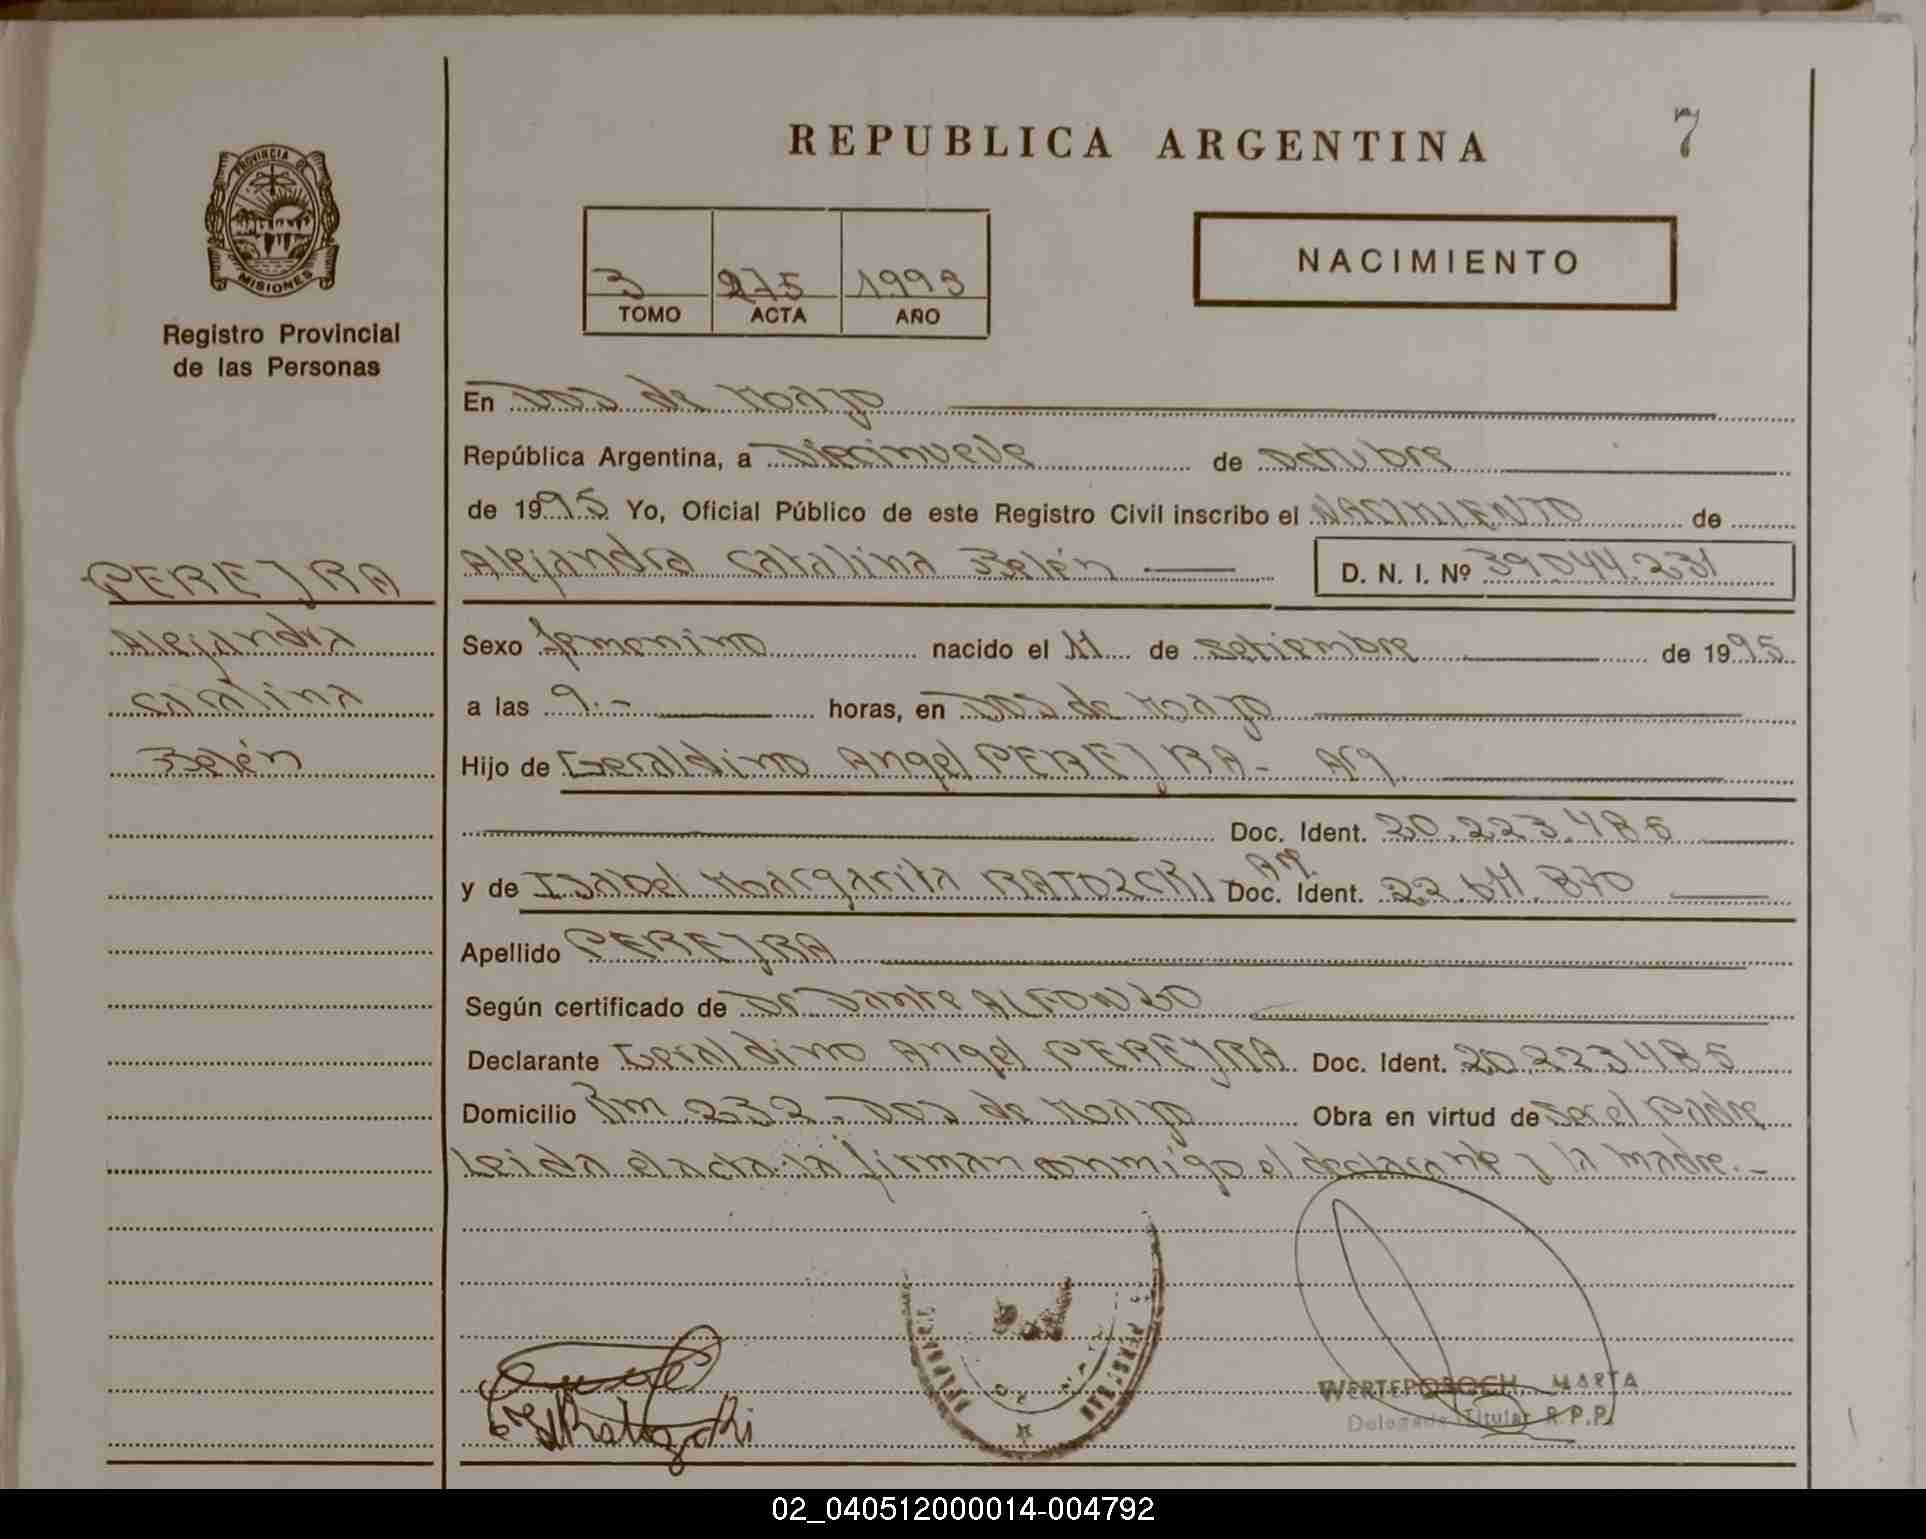 REPUBLICA ARGENTINA
7
PROVINCIA D
MISIONES
Registro Provincial
de las Personas
3 275 1995
TOMO ACTA AÑO
NACIMIENTO
En Dos de Mayo
República Argentina, a Diecinueve de octubre
de 1995 Yo, Oficial Público de este Registro Civil inscribo el NACIMIENTO de
Alejandra Catalina Belén D. N. I. Nº 39.044.231
PEREJRA
Alejandra
Catalina
Belén
Sexo femenino nacido el 11 de setiembre de 1995
a las 9.- horas, en Dos de Mayo
Hijo de Geraldino Angel PEREJRA - Arg.
Doc. Ident. 20.223.485
y de Isabel Margarita RATOZCKI - Arg. Doc. Ident. 22.611.870
Apellido PEREJRA
Según certificado de Dr. Dante ALFONSO
Declarante Geraldino Angel PEREYRA Doc. Ident. 20.223.485
Domicilio Km 232 - Dos de Mayo Obra en virtud de ser el padre
Leida el acta la firman conmigo el declarante y la madre.-
WERTEPOROCH MARTA
Delegado Titular R.P.P.
02_040512000014-004792